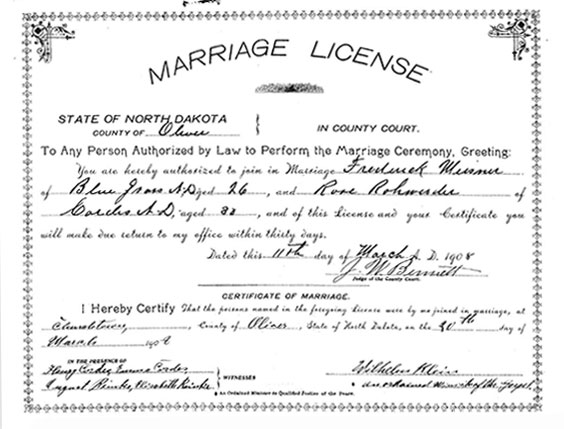 MARRIAGE LICENSE
STATE OF NORTH DAKOTA
COUNTY OF Oliver
IN COUNTY COURT.
To Any Person Authorized by Law to Perform the Marriage Ceremony, Greeting:
You are hereby authorized to join in Marriage Frederick
of Blue Grass N.D. aged 26, and Rose Rohweder of
N.D. aged, and of this License and your Certificate you
will make due return to my office within thirty days.
Dated this 11th day of March A. D. 1908
J. W. Bennett
Judge of the County Court.
CERTIFICATE OF MARRIAGE.
I Hereby Certify That the persons named in the foregoing License were by me joined in marriage, at
County of Oliver, State of North Dakota, on the 20th day of
March 190
IN THE PRESENCE OF
Emma
August Reinke, Elizabeth Reinke
WITNESSES
Wilhelm
an ordained Minister of the Gospel.
*An Ordained Minister or Qualified Justice of the Peace.